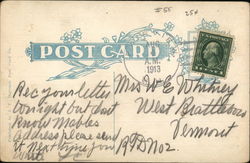 #55 25¢
POST CARD
A.M.
1913
Rec your letter
Mrs W E Whitney
West Brattleboro
Vermont
R F D No 2.
tonight but dont
know Mables
address please send
it Next time you
write